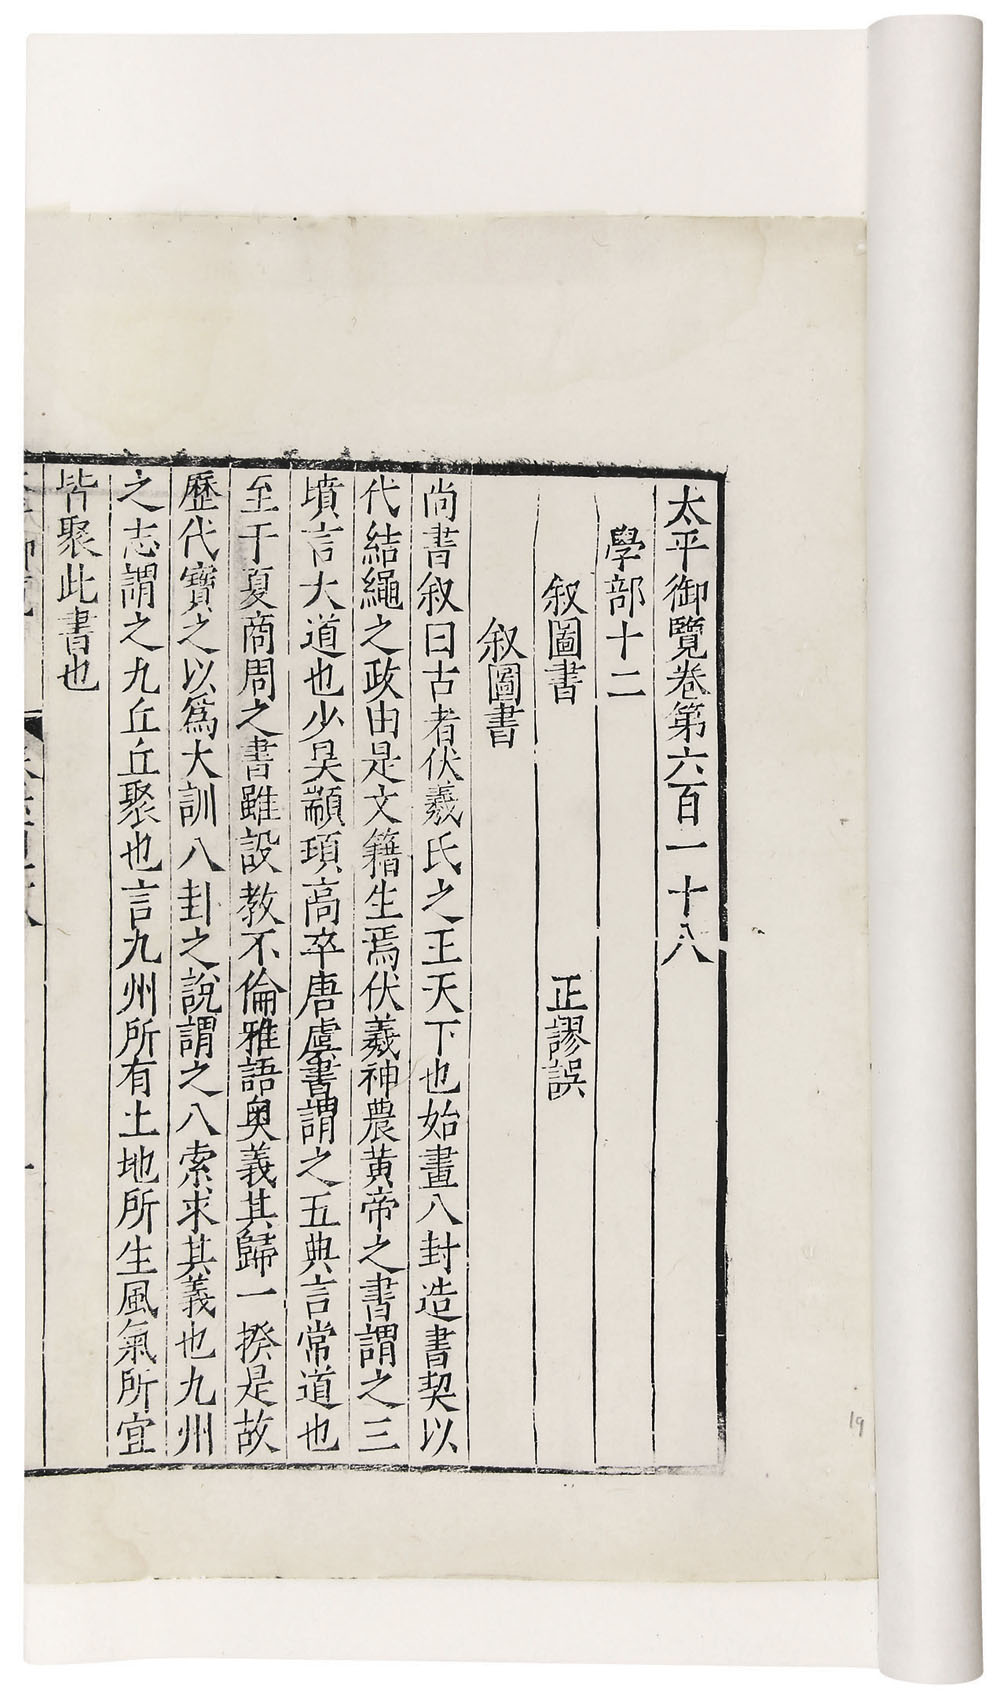 太平御覽卷第六百一十八
學部十二
叙圖書　正謬誤
叙圖書
尚書叙曰古者伏羲氏之王天下也始畫八封造書契以
代結繩之政由是文籍生焉伏羲神農黄帝之書謂之三
墳言大道也少昊顓頊高卒唐虞書謂之五典言常道也
至于夏商周之書雖設教不倫雅語奥義其歸一揆是故
歷代寶之以爲大訓八卦之說謂之八索求其義也九州
之志謂之九丘丘聚也言九州所有土地所生風氣所宜
皆聚此書也
19